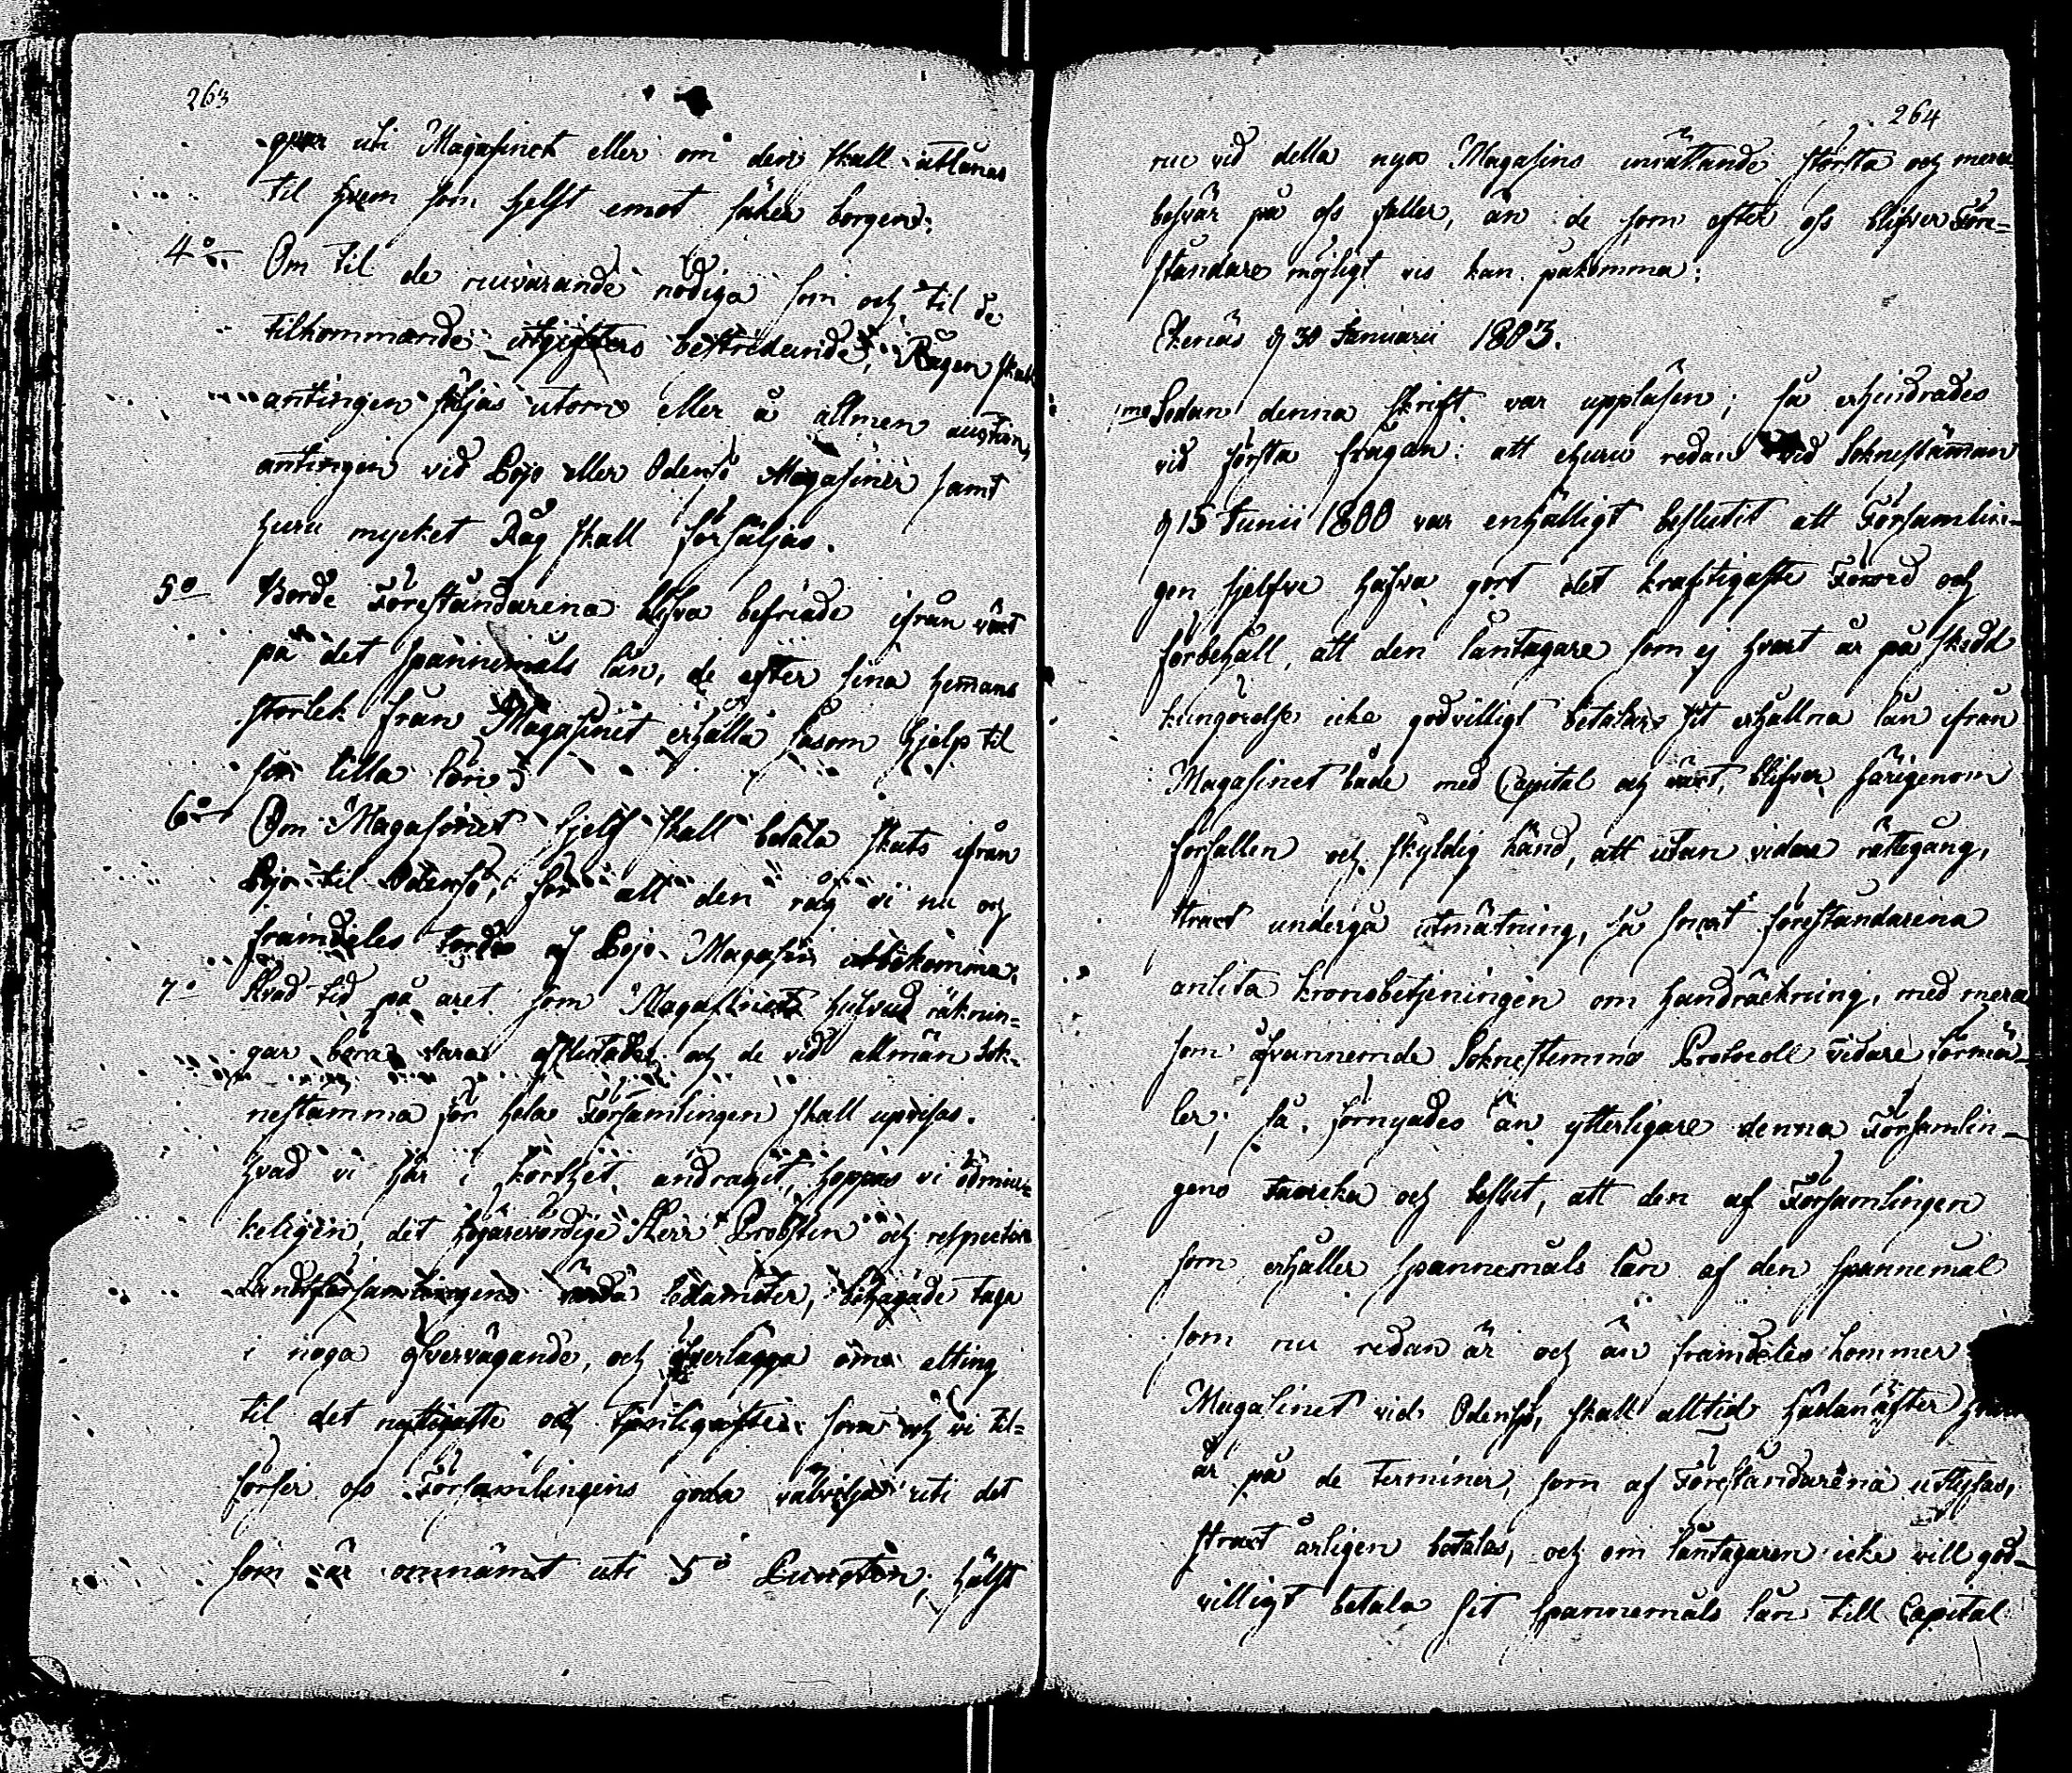 263
qvar uti Magasinet eller om den skall utlånas
til hvem som helst emot säker borgen;
4o Om til de nuvarande nödiga som och til de
tilkommande utgifters bestridande, Rågen skall
antingen säljas utom eller å allmen auction,
antingen vid Bojo eller Odensö Magasiner samt
huru mycket Råg skall försäljas.
5o Borde Föreståndarena blifva befriade ifrån växt
på det spannemåls lån, de efter sina hemans
storlek från Magasinet erhålla såsom hjelp til
sin lilla lön;
6o Om Magasinet sjelf skall betala skuts ifrån
Bojo til Odensö, för att den råg vi nu och
framdeles torde af Bojo Magasin utbekomma;
7o Hvad tid på året som Magasinets hufvud räknin=
gar böra vara afslutade och de vid allmän Sok=
nestämma för hela Församlingen skall upvisas.
Hvad vi här i korthet andragit, hoppas vi ödmiu=
keligen, det högärevördige Herr Probsten och respective
Landtförsamlingens ledamöter, behagade taga
i noga öfvervägande, och öfverlägga om alting
til det nyttigaste och som och vi til=
förser oss Församlingens goda välvilja uti det
som är omnämt uti 5o Puncten; hälst
264
nu vid detta nya Magasins inrättande största och mera
besvär på oss faller, än de som efter oss blifver Före=
ståndare möjligt vis kan påkomma;
Ekenäs d 30 Januarii 1803.
1mo Sedan denna skrift var uppläsen; så erhindrades
vid första frågan: att ehuru redan vid Soknestämman
d 15 Junii 1800 var enhälligt beslutit att Församlin=
gen sjelfve hafva gort det kraftigaste Förord och
förbehåll, att den låntagare som ej hvart år på skedd
kungörelse icke godvilligt betalar sit erhållna lån ifrån
Magasinet både med Capital och växt, blifver härigenom
förfallen och skyldig känd, att utan vidare rättegång,
straxt undergå utmätning, så snart föreståndarena
anlita kronobetjeningen om handräckning, med mera
som ofvannemde Soknestemmo Protocoll vidare förmä=
ler; så förnyades än ytterligare denna Församlin=
gens och beslut, att den af Församlingen
som erhåller spannemåls lån af den spannemål
som nu redan är och än framdeles kommer
Magasinet vid Odensö, skall alltid hädanäfter
år på de Terminer, som af Föreståndarena utlysas,
straxt årligen betalas, och om låntagaren icke vill god=
villigt betala sit spannemåls lån till Capital